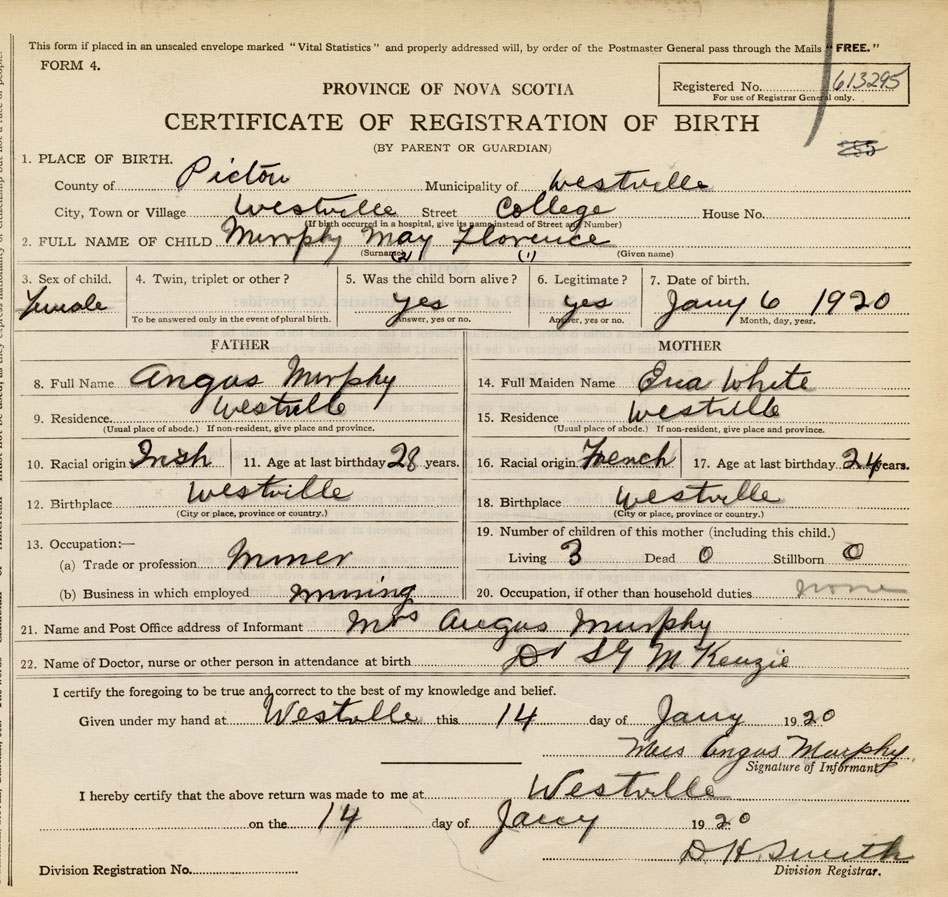 This form if placed in an unsealed envelope marked "Vital Statistics" and properly addressed will, by order of the Postmaster General pass through the Mails "FREE."
FORM 4.
Registered No. 613295
For use of Registrar General only.
PROVINCE OF NOVA SCOTIA
CERTIFICATE OF REGISTRATION OF BIRTH
(BY PARENT OR GUARDIAN)
1. PLACE OF BIRTH.
County of Pictou Municipality of Westville
City, Town or Village Westville Street College House No.
(If birth occurred in a hospital, give its name instead of Street and Number)
2. FULL NAME OF CHILD Murphy May Florence
(Surname) (2) (1) (Given name)
3. Sex of child. 4. Twin, triplet or other? 5. Was the child born alive? 6. Legitimate? 7. Date of birth.
Female yes yes Jany 6 1920
To be answered only in the event of plural birth. Answer, yes or no. Answer, yes or no. Month, day, year.
FATHER
8. Full Name Angus Murphy
9. Residence. Westville
(Usual place of abode.) If non-resident, give place and province.
10. Racial origin Irish 11. Age at last birthday 28 years.
12. Birthplace Westville
(City or place, province or country.)
13. Occupation:—
(a) Trade or profession Miner
(b) Business in which employed mining
MOTHER
14. Full Maiden Name White
15. Residence Westville
(Usual place of abode.) If non-resident, give place and province.
16. Racial origin French 17. Age at last birthday 24 years.
18. Birthplace Westville
(City or place, province or country.)
19. Number of children of this mother (including this child.)
Living 3 Dead 0 Stillborn 0
20. Occupation, if other than household duties. none
21. Name and Post Office address of Informant Mrs Angus Murphy
22. Name of Doctor, nurse or other person in attendance at birth Dr McKenzie
I certify the foregoing to be true and correct to the best of my knowledge and belief.
Given under my hand at Westville this 14 day of Jany 1920
Mrs Angus Murphy
Signature of Informant
I hereby certify that the above return was made to me at Westville
on the 14 day of Jany 1920
D. H. Smith
Division Registration No. Division Registrar.